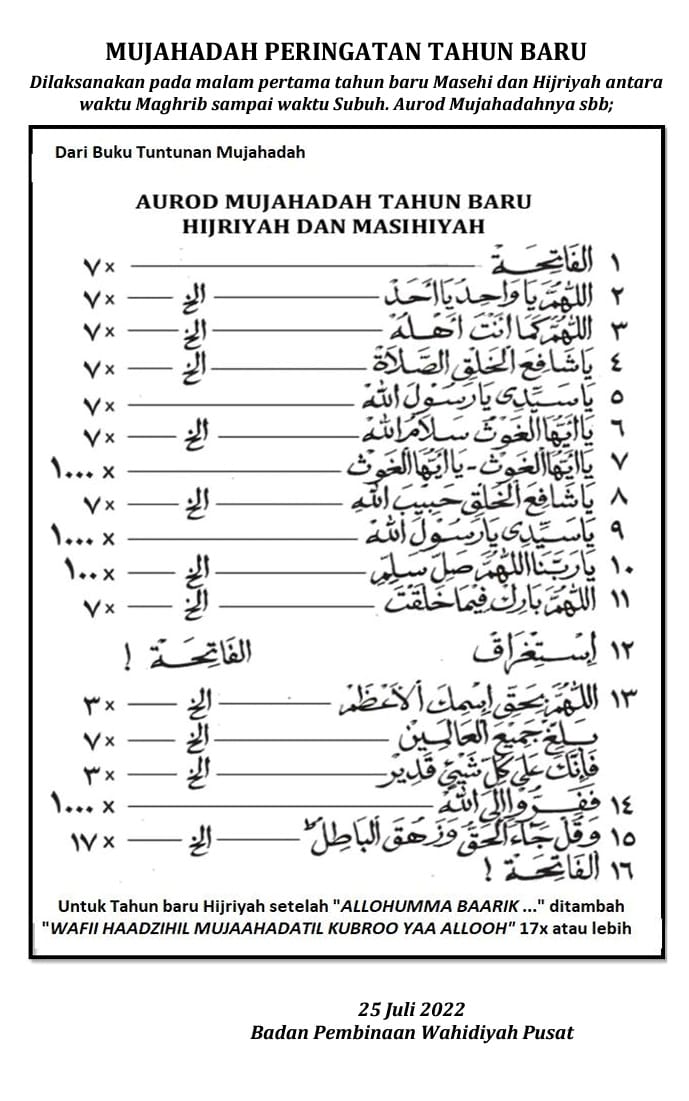 MUJAHADAH PERINGATAN TAHUN BARU
Dilaksanakan pada malam pertama tahun baru Masehi dan Hijriyah antara
waktu Maghrib sampai waktu Subuh. Aurod Mujahadahnya sbb;
Dari Buku Tuntunan Mujahadah
AUROD MUJAHADAH TAHUN BARU
HIJRIYAH DAN MASIHIYAH
١ اَلْفَاتِحَةْ ـــــ ٧ x
٢ اَللّٰهُمَّ يَا وَاحِدُ يَا اَحَدْ ـــــ الخ ـــــ ٧ x
٣ اَللّٰهُمَّ كَمَا اَنْتَ اَهْلُهْ ـــــ الخ ـــــ ٧ x
٤ يَاشَافِعَ الْخَلْقِ الصَّلَاةْ ـــــ الخ ـــــ ٧ x
٥ يَاسَيِّدِى يَارَسُوْلَ اللهْ ـــــ ٧ x
٦ يَااَيُّهَا الْغَوْثُ سَلَامُ اللهْ ـــــ الخ ـــــ ٧ x
٧ يَااَيُّهَا الْغَوْثُ - يَااَيُّهَا الْغَوْثُ ـــــ ١٠٠٠ x
٨ يَاشَافِعَ الْخَلْقِ حَبِيْبَ اللهِ ـــــ الخ ـــــ ٧ x
٩ يَاسَيِّدِى يَارَسُوْلَ اللهْ ـــــ ١٠٠٠ x
١٠ يَارَبَّنَا اللّٰهُمَّ صَلِّ سَلِّمِ ـــــ الخ ـــــ ١٠٠ x
١١ اَللّٰهُمَّ بَارِكْ فِيْمَا خَلَقْتَ ـــــ الخ ـــــ ٧ x
١٢ اِسْتِغْرَاقْ اَلْفَاتِحَةْ !
١٣ اَللّٰهُمَّ بِحَقِّ اِسْمِكَ اْلاَعْظَمْ ـــــ الخ ـــــ ٣ x
بَلِّغْ جَمِيْعَ الْعَالَمِيْنَ ـــــ الخ ـــــ ٧ x
فَاِنَّكَ عَلَى كُلِّ شَيْئٍ قَدِيْر ـــــ الخ ـــــ ٣ x
١٤ فَفِرُّوْا اِلَى اللهْ ـــــ ١٠٠٠ x
١٥ وَقُلْ جَاءَ الْحَقُّ وَزَهَقَ الْبَاطِلُ ـــــ الخ ـــــ ١٧ x
١٦ اَلْفَاتِحَةْ !
Untuk Tahun baru Hijriyah setelah "ALLOHUMMA BAARIK ..." ditambah
"WAFII HAADZIHIL MUJAAHADATIL KUBROO YAA ALLOOH" 17x atau lebih
25 Juli 2022
Badan Pembinaan Wahidiyah Pusat